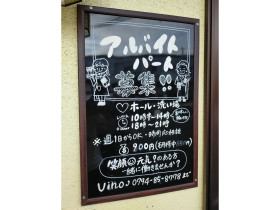 アルバイト
パート
募集!!
♡ホール・洗い場
10時〜14時
18時〜21時
※週1日からOK・時間応相談
900円
笑顔 元気 のある方
一緒に働きませんか?
Vino♪ 0794-85-8778 まで